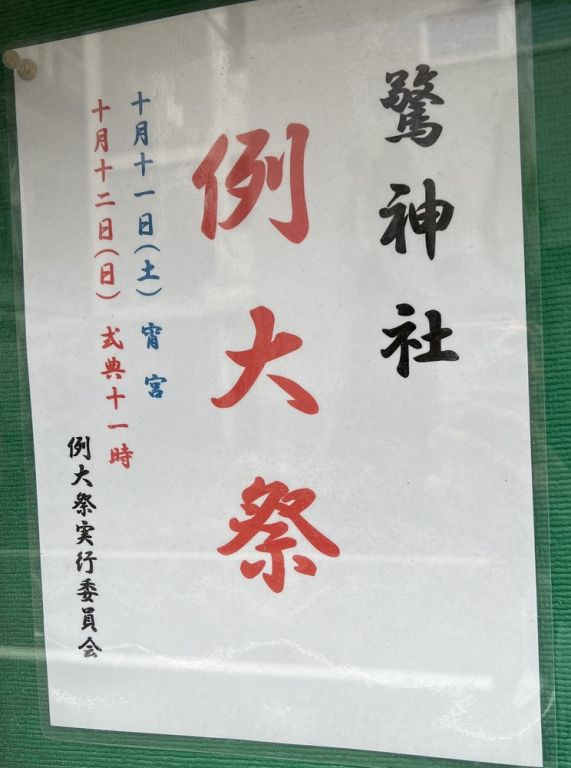 驚神社
例大祭
十月十一日(土) 宵宮
十月十二日(日) 式典十一時
例大祭実行委員会